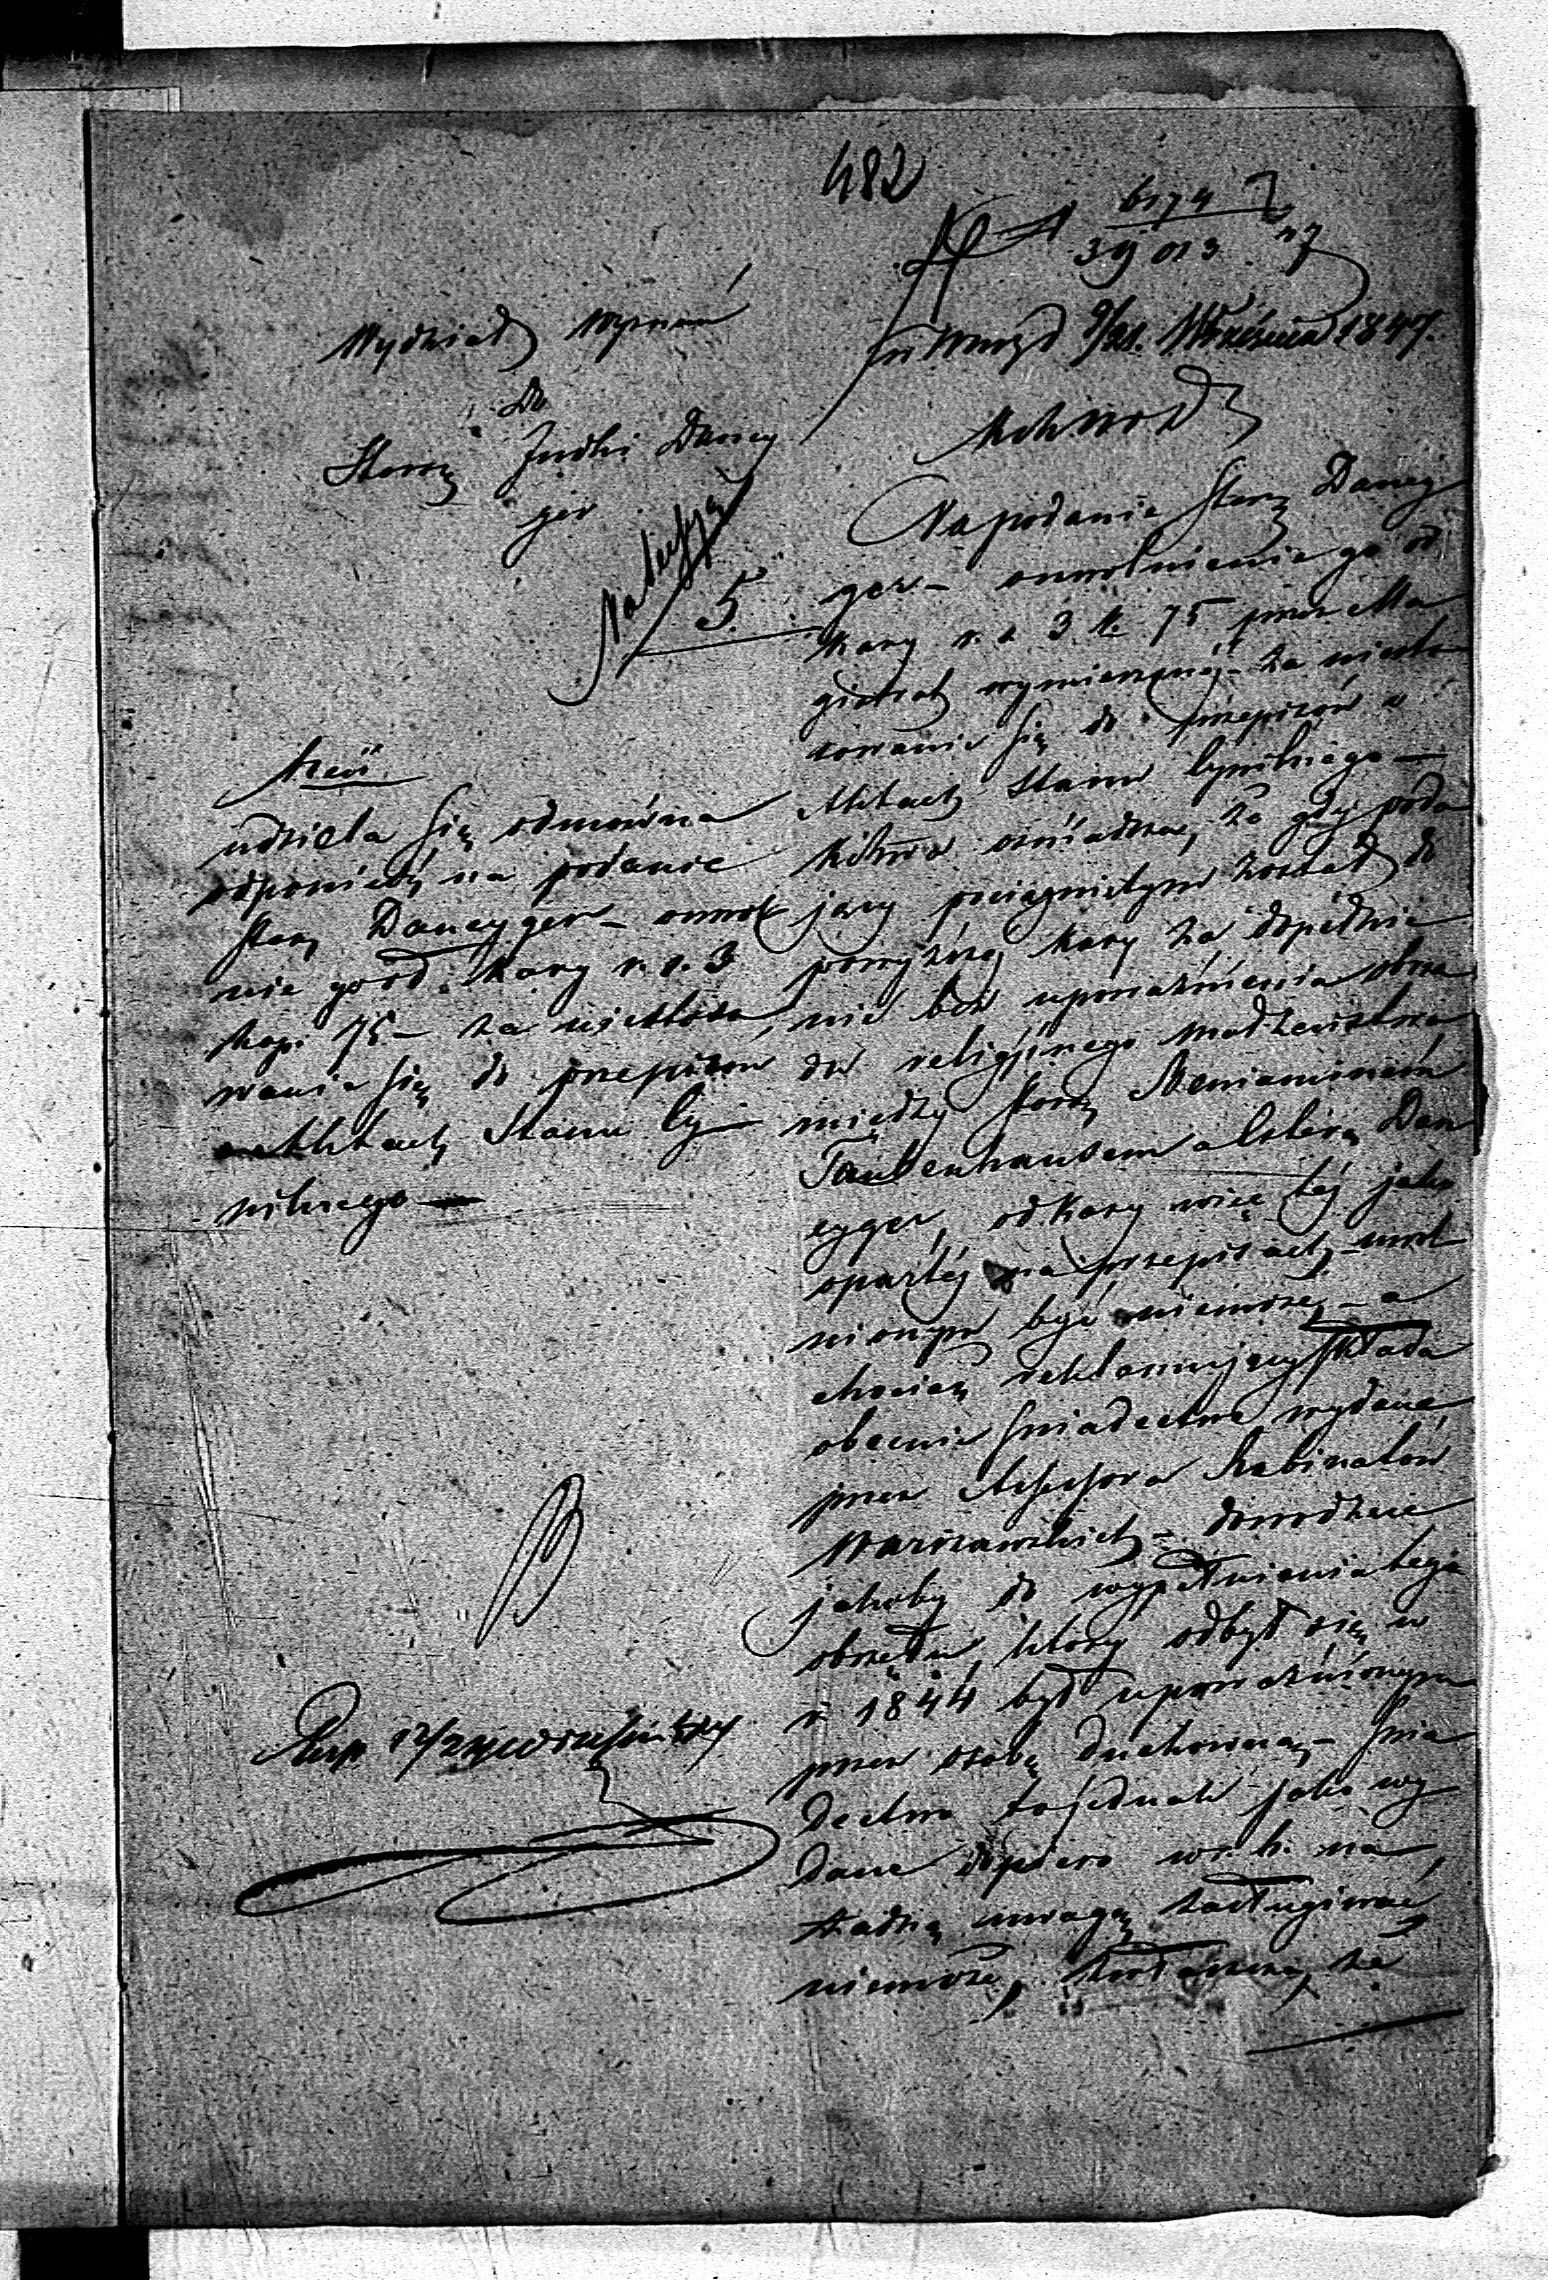 482
6174
39 013 47
Wydział Wyznań
Do
Starz Judki Dancy
ger
5
9/21. Września 1847.
Na podanie Starz Dancy
ger – o uwolnienie go od
Kary r. s. 3 k. 75 przez Ma
gistrat wymierzonéj – za niesto
sowanie się do przepisów o
Aktach Stanu Cywilnego –
oświadcza, że gdy poda
jący pociągniętym został do
powyższej Kary za dopełnie
nie bez upoważnienia obrzę
du religijnego małżeństwa
między Starz Beniaminem
Taubenhausem a Esterą Dan
cyger, od Kary więc téj jako
opartéj na przepisach – uwol
nionym być niemoże – a
chociaż reklamujący składa
obecnie świadectwo wydane
przez Assessora Rabinatów
Warszawskich – dowodzące
jakoby do wypełnienia tego
obrzędu, który odbył się w
r. 1844 był upoważnionym
przez osobę duchowną – świa
dectwo to jednak jako wy
dane dopiero w r. b. na
żadną uwagę zasługiwać
niemoże, że
Treść
udziela się odmówna
odpowiedź na podanie
Starz Dancygger – o uwol
nie go od Kary r. s. 3
kop. 75 – za niestoso
wanie się do przepisów
o Aktach Stanu Cy
wilnego –